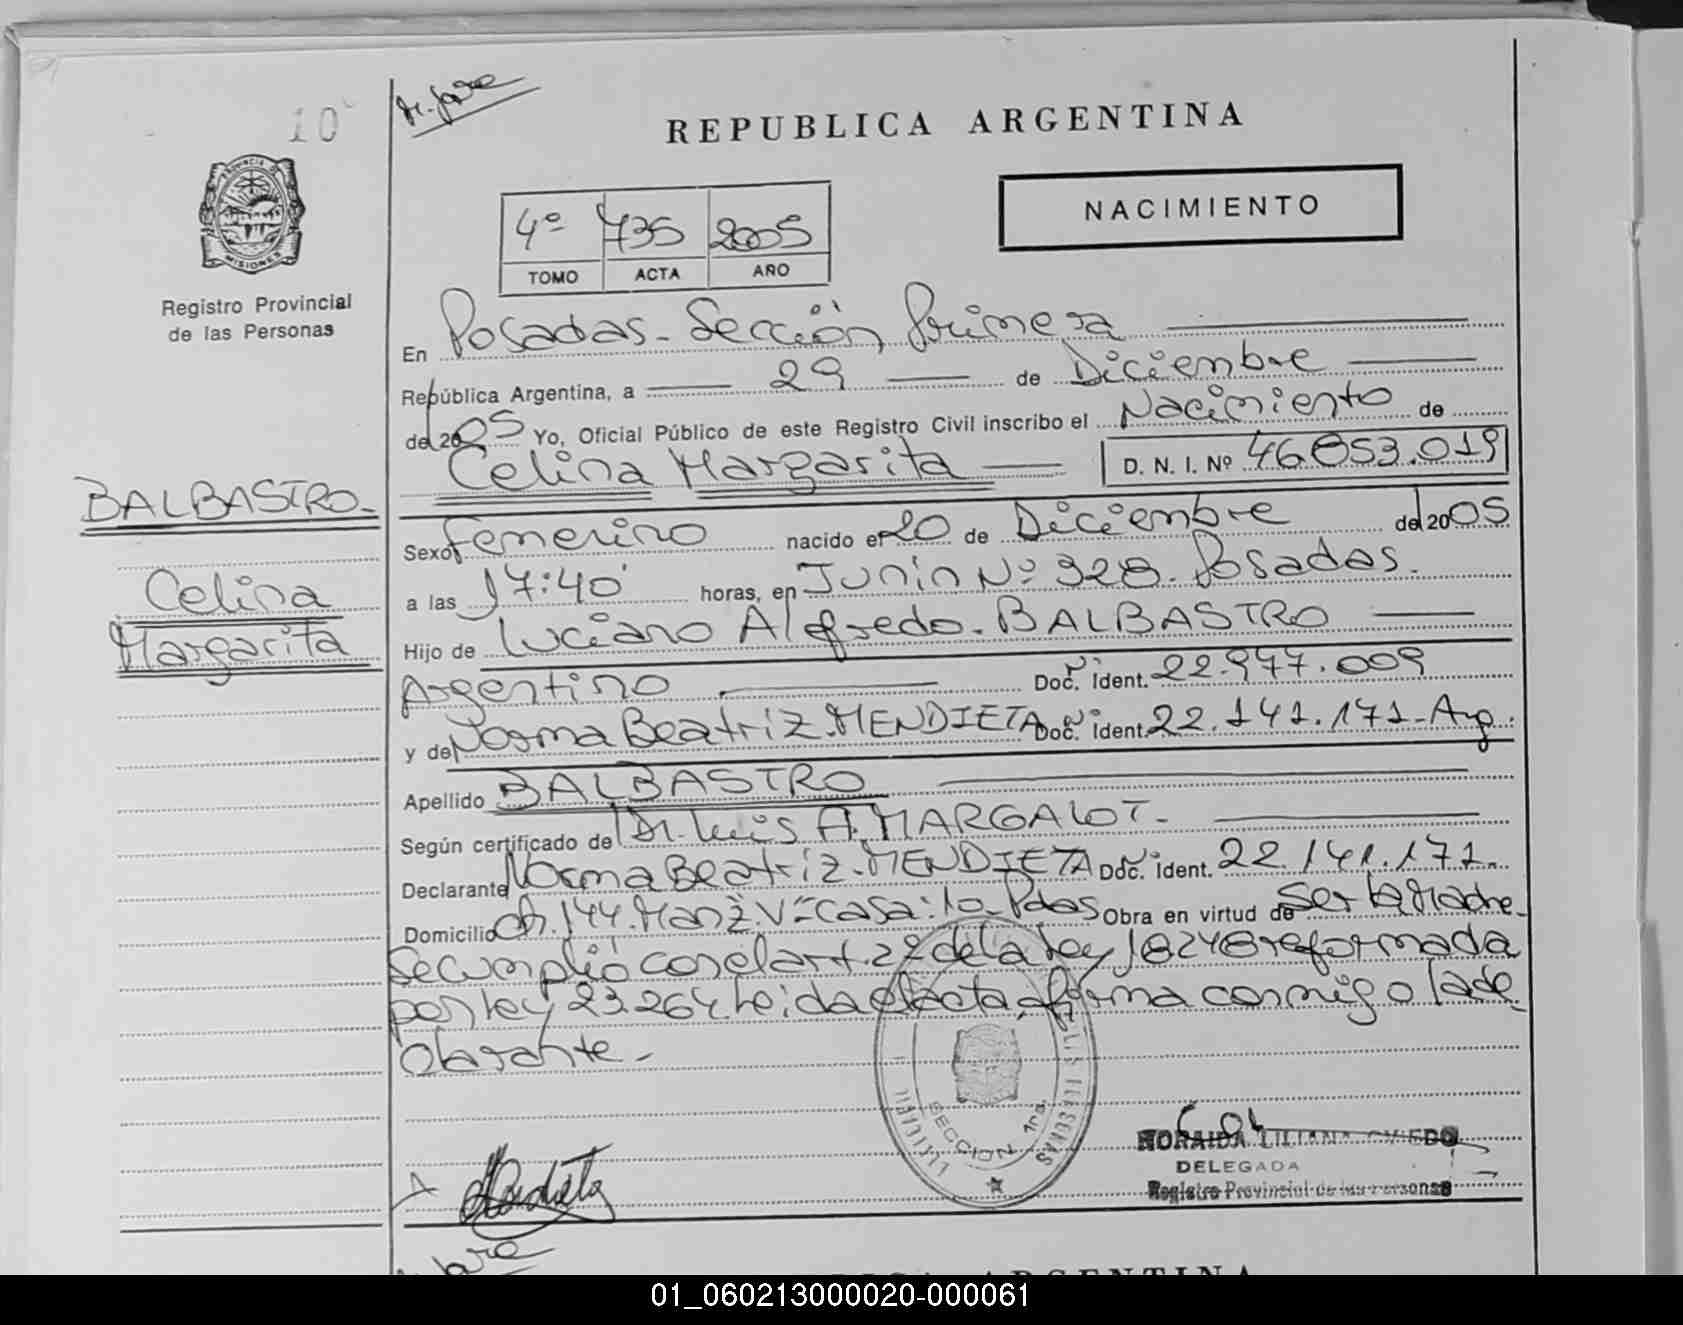 10
REPUBLICA ARGENTINA
PROVINCIA DE
MISIONES
Registro Provincial
de las Personas
NACIMIENTO
4º 735 2005
TOMO ACTA AÑO
En Posadas - Sección Primera
República Argentina, a 29 de Diciembre
del 2005 Yo, Oficial Público de este Registro Civil inscribo el Nacimiento de
Celina Margarita D. N. I. Nº 46853.019
BALBASTRO-
Celina
Margarita
Sexo Femenino nacido el 20 de Diciembre del 2005
a las 17:40 horas, en Junín Nº 328. Posadas.
Hijo de Luciano Alfredo. BALBASTRO
Argentino Doc. Ident. 22.977.009
y de Norma Beatriz. MENDIETA Doc. Ident. 22.141.171-Arg.
Apellido BALBASTRO
Según certificado de Dr. Luis A. MARGALOT.
Declarante Norma Beatriz. MENDIETA Doc. Ident. 22.141.171.
Domicilio Ch. 144. Manz. V= Casa: 10. Pdas Obra en virtud de Ser la Madre-
Se cumplió con el art. 2º de la Ley 18248 reformada
por Ley 23.264. Leída el acta, firma conmigo la de
clarante.-
SECCION 1ra.
LILIANA OVIEDO
DELEGADA
Registro Provincial de las Personas
ARGENTINA
01_060213000020-000061